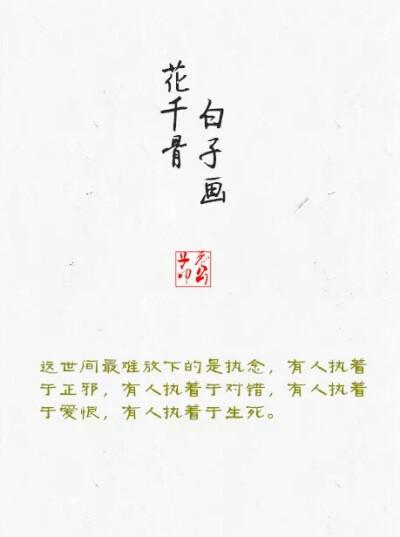 花千骨
白子画
这世间最难放下的是执念，有人执着
于正邪，有人执着于对错，有人执着
于爱恨，有人执着于生死。